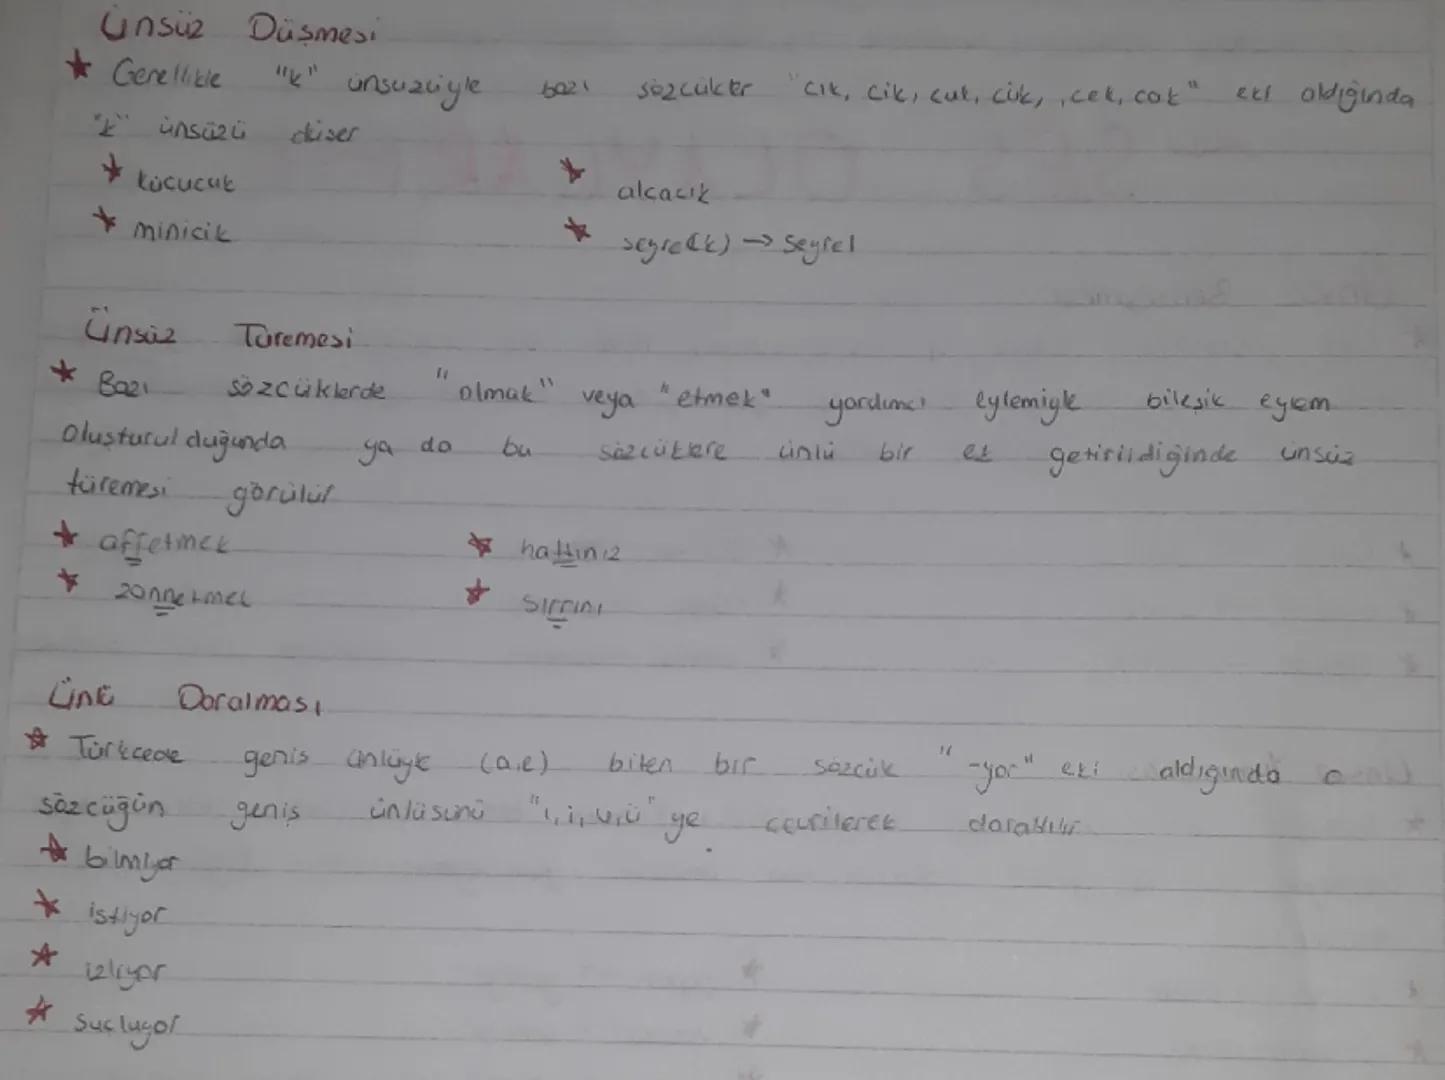 Ünsüz Düşmesi
Genellikle "k" ünsüzüyle bazı sözcükler "cık, cik, cuk, cük, cek, cak" eki aldığında
"k" ünsüzü düşer
küçücük alçacık
minicik seyre(k) → seyrel
Ünsüz Türemesi
Bazı sözcüklerde "olmak" veya "etmek" yardımcı eylemiyle bileşik eylem
oluşturulduğunda ya da bu sözcüklere ünlü bir ek getirildiğinde ünsüz
türemesi görülür
affetmek hattınız
zannetmek sırrını
Ünlü Daralması
Türkçede geniş ünlüyle (a,e) biten bir sözcük "-yor" eki aldığında o
sözcüğün geniş ünlüsünü "ı, i, u, ü" ye çevrilerek daraltılır
bilmiyor
istiyor
izliyor
suçluyor